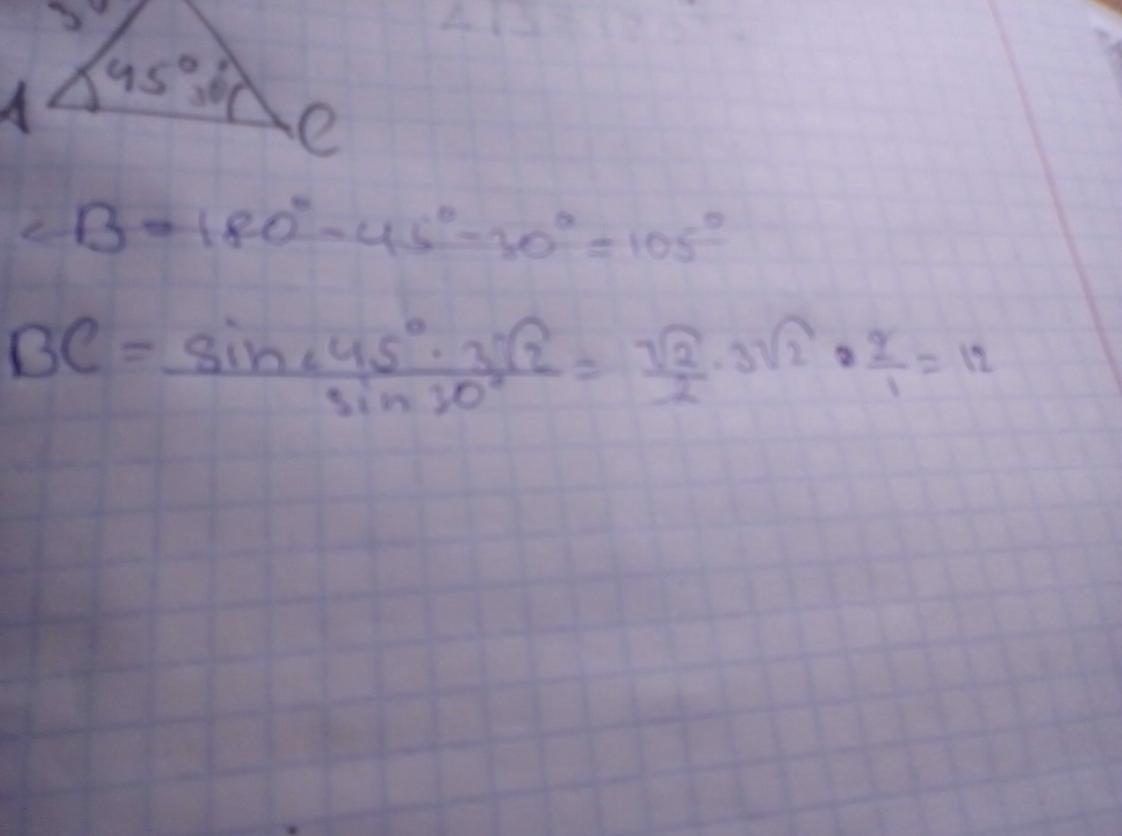 3√
45° 30°
A C
<B = 180° - 45° - 30° = 105°
BC = sin<45° · 3√2 / sin 30° = √2/2 · 3√2 · 2/1 = 12